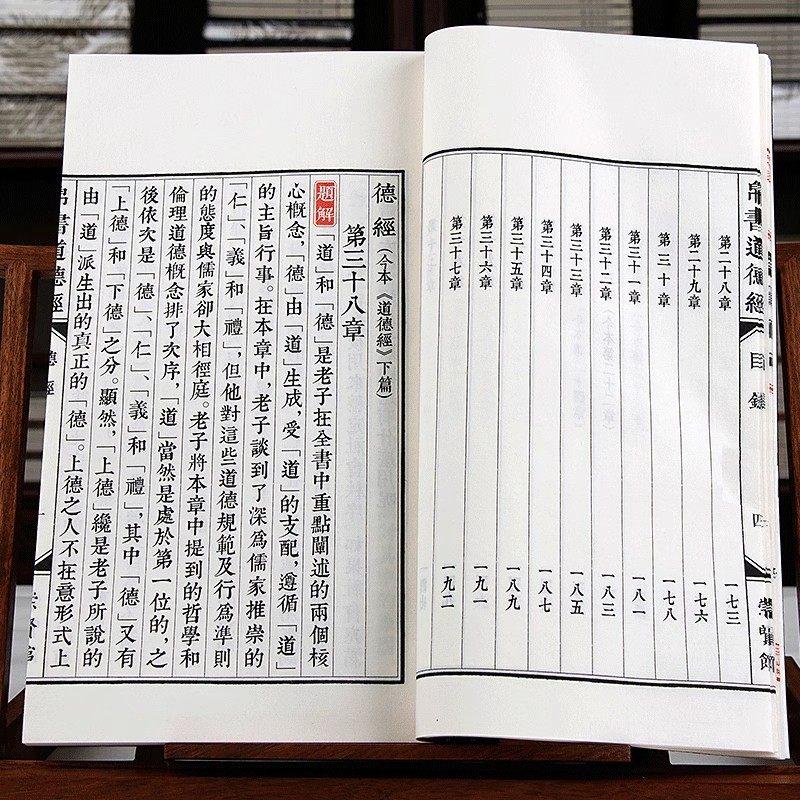 帛書道德經 目錄 四 崇賢館
第二十八章 一七三
第二十九章 一七六
第三十章 一七八
第三十一章 一八一
第三十二章 一八三
第三十三章 一八五
第三十四章 一八七
第三十五章 一八九
第三十六章 一九一
第三十七章 一九二
德經（今本《道德經》下篇）
第三十八章
題解 「道」和「德」是老子在全書中重點闡述的兩個核
心概念，「德」由「道」生成，受「道」的支配，遵循「道」
的主旨行事。在本章中，老子談到了深爲儒家推崇的
「仁」、「義」和「禮」，但他對這些道德規範及行爲準則
的態度與儒家卻大相徑庭。老子將本章中提到的哲學和
倫理道德概念排了次序，「道」當然是處於第一位的，之
後依次是「德」、「仁」、「義」和「禮」，其中「德」又有
「上德」和「下德」之分。顯然，「上德」纔是老子所說的
由「道」派生出的真正的「德」。上德之人不在意形式上
帛書道德經 德經 一 崇賢館